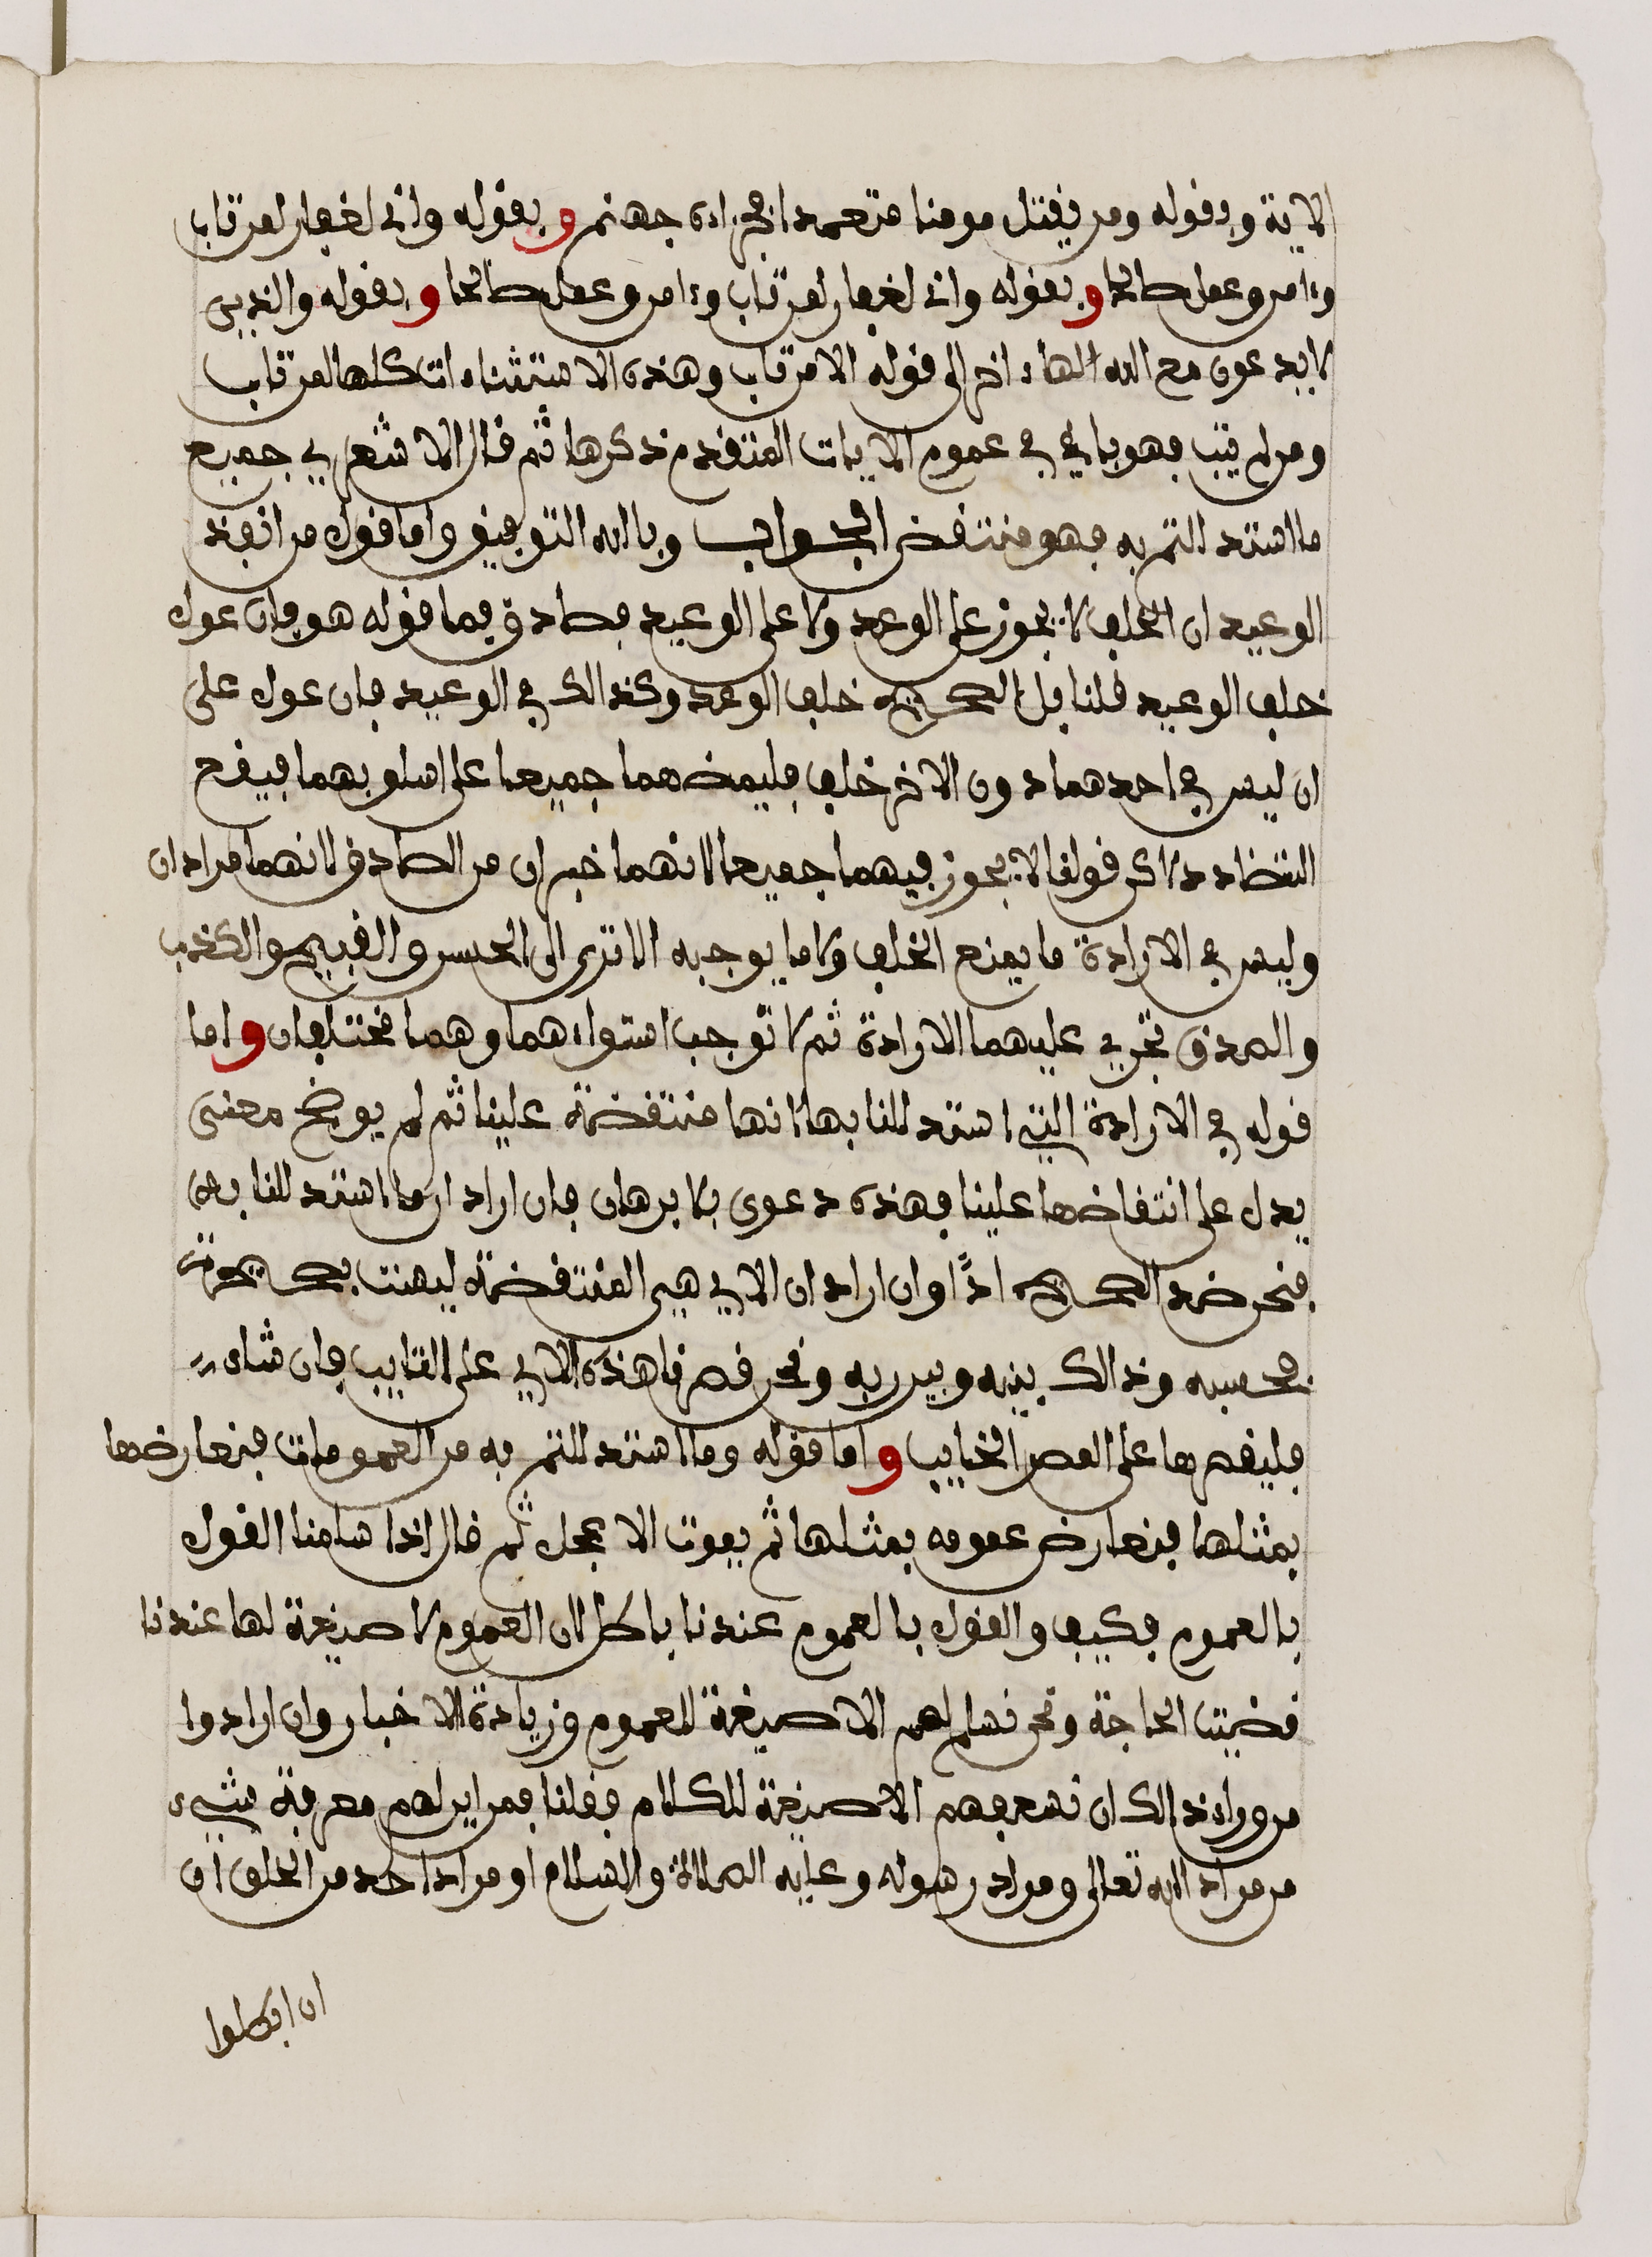 الاية وبقوله ومن يقتل مومنا متعمدا فجزاءه جهنم وبقوله واني لغفار لمن تاب
وءامن وعمل صالحا وبقوله واني لغفار لمن تاب وءامن وعمل صالحا وبقوله والذين
لا يدعون مع الله الها ءاخر الى قوله الا من تاب وهذه الاستثناءات كلها لمن تاب
ومن لم يتب فهو باق في عموم الايات المتقدم ذكرها ثم قال الاشعري جميع
ما استدللتم به فهو منتقض الجواب وبالله التوفيق واما قول من انفذ
الوعيد ان الخلف لا يجوز على الوعد ولا على الوعيد فصادق فيما قوله هو فان عول
خلف الوعيد قلنا بل الصحيح خلف الوعد وكذالك في الوعيد فان عول على
ان ليس في احدهما دون الاخر خلف فليمضهما جميعا على اسلوبهما فيقع
التضاد دلاكن قولنا لا يجوز فيهما جميعا لانهما خبران من الصادق لانهما مرادان
وليس في الارادة ما يمنع الخلف ولا ما يوجبه الا ترى الى الحسن والقبيح والكذب
والصدق تجري عليهما الارادة ثم لا توجب استواءهما وهما مختلفان واما
قوله في الارادة التي استدللنا بها انها منتقضة علينا ثم لم يوضح معنى
يدل على انتقاضها علينا فهذه دعوى بلا برهان فان اراد ان ما استدللنا به
فنحن ضد الصحيح اذًا وان اراد ان الاي هي المنتقضة ليهنت
فحسبه وذالك بينه وبين ربه ونحن قصرنا هذه الاي على التايب فان شاء
فليقصرها على المصر الخايب واما قوله وما استدللتم به من العمومات فنعارضها
بمثلها فنعارض عمومه بمثلها ثم يموت الاعجل ثم قال اذا سلمنا القول
بالعموم فكيف والقول بالعموم عندنا باطل لان العموم لا صيغة لها عندنا
قضيت الحاجة ونحن نسلم لهم الا صيغة للعموم وزيادة الاخبار وان ارادوا
من وراء ذالك ان نسعفهم الا صيغة للكلام فقلنا فمن اين لهم معرفة شيء
من مراد الله تعالى ومراد رسوله وعليه الصلاة والسلام او مراد احد من الخلق ان
ان ابطلوا